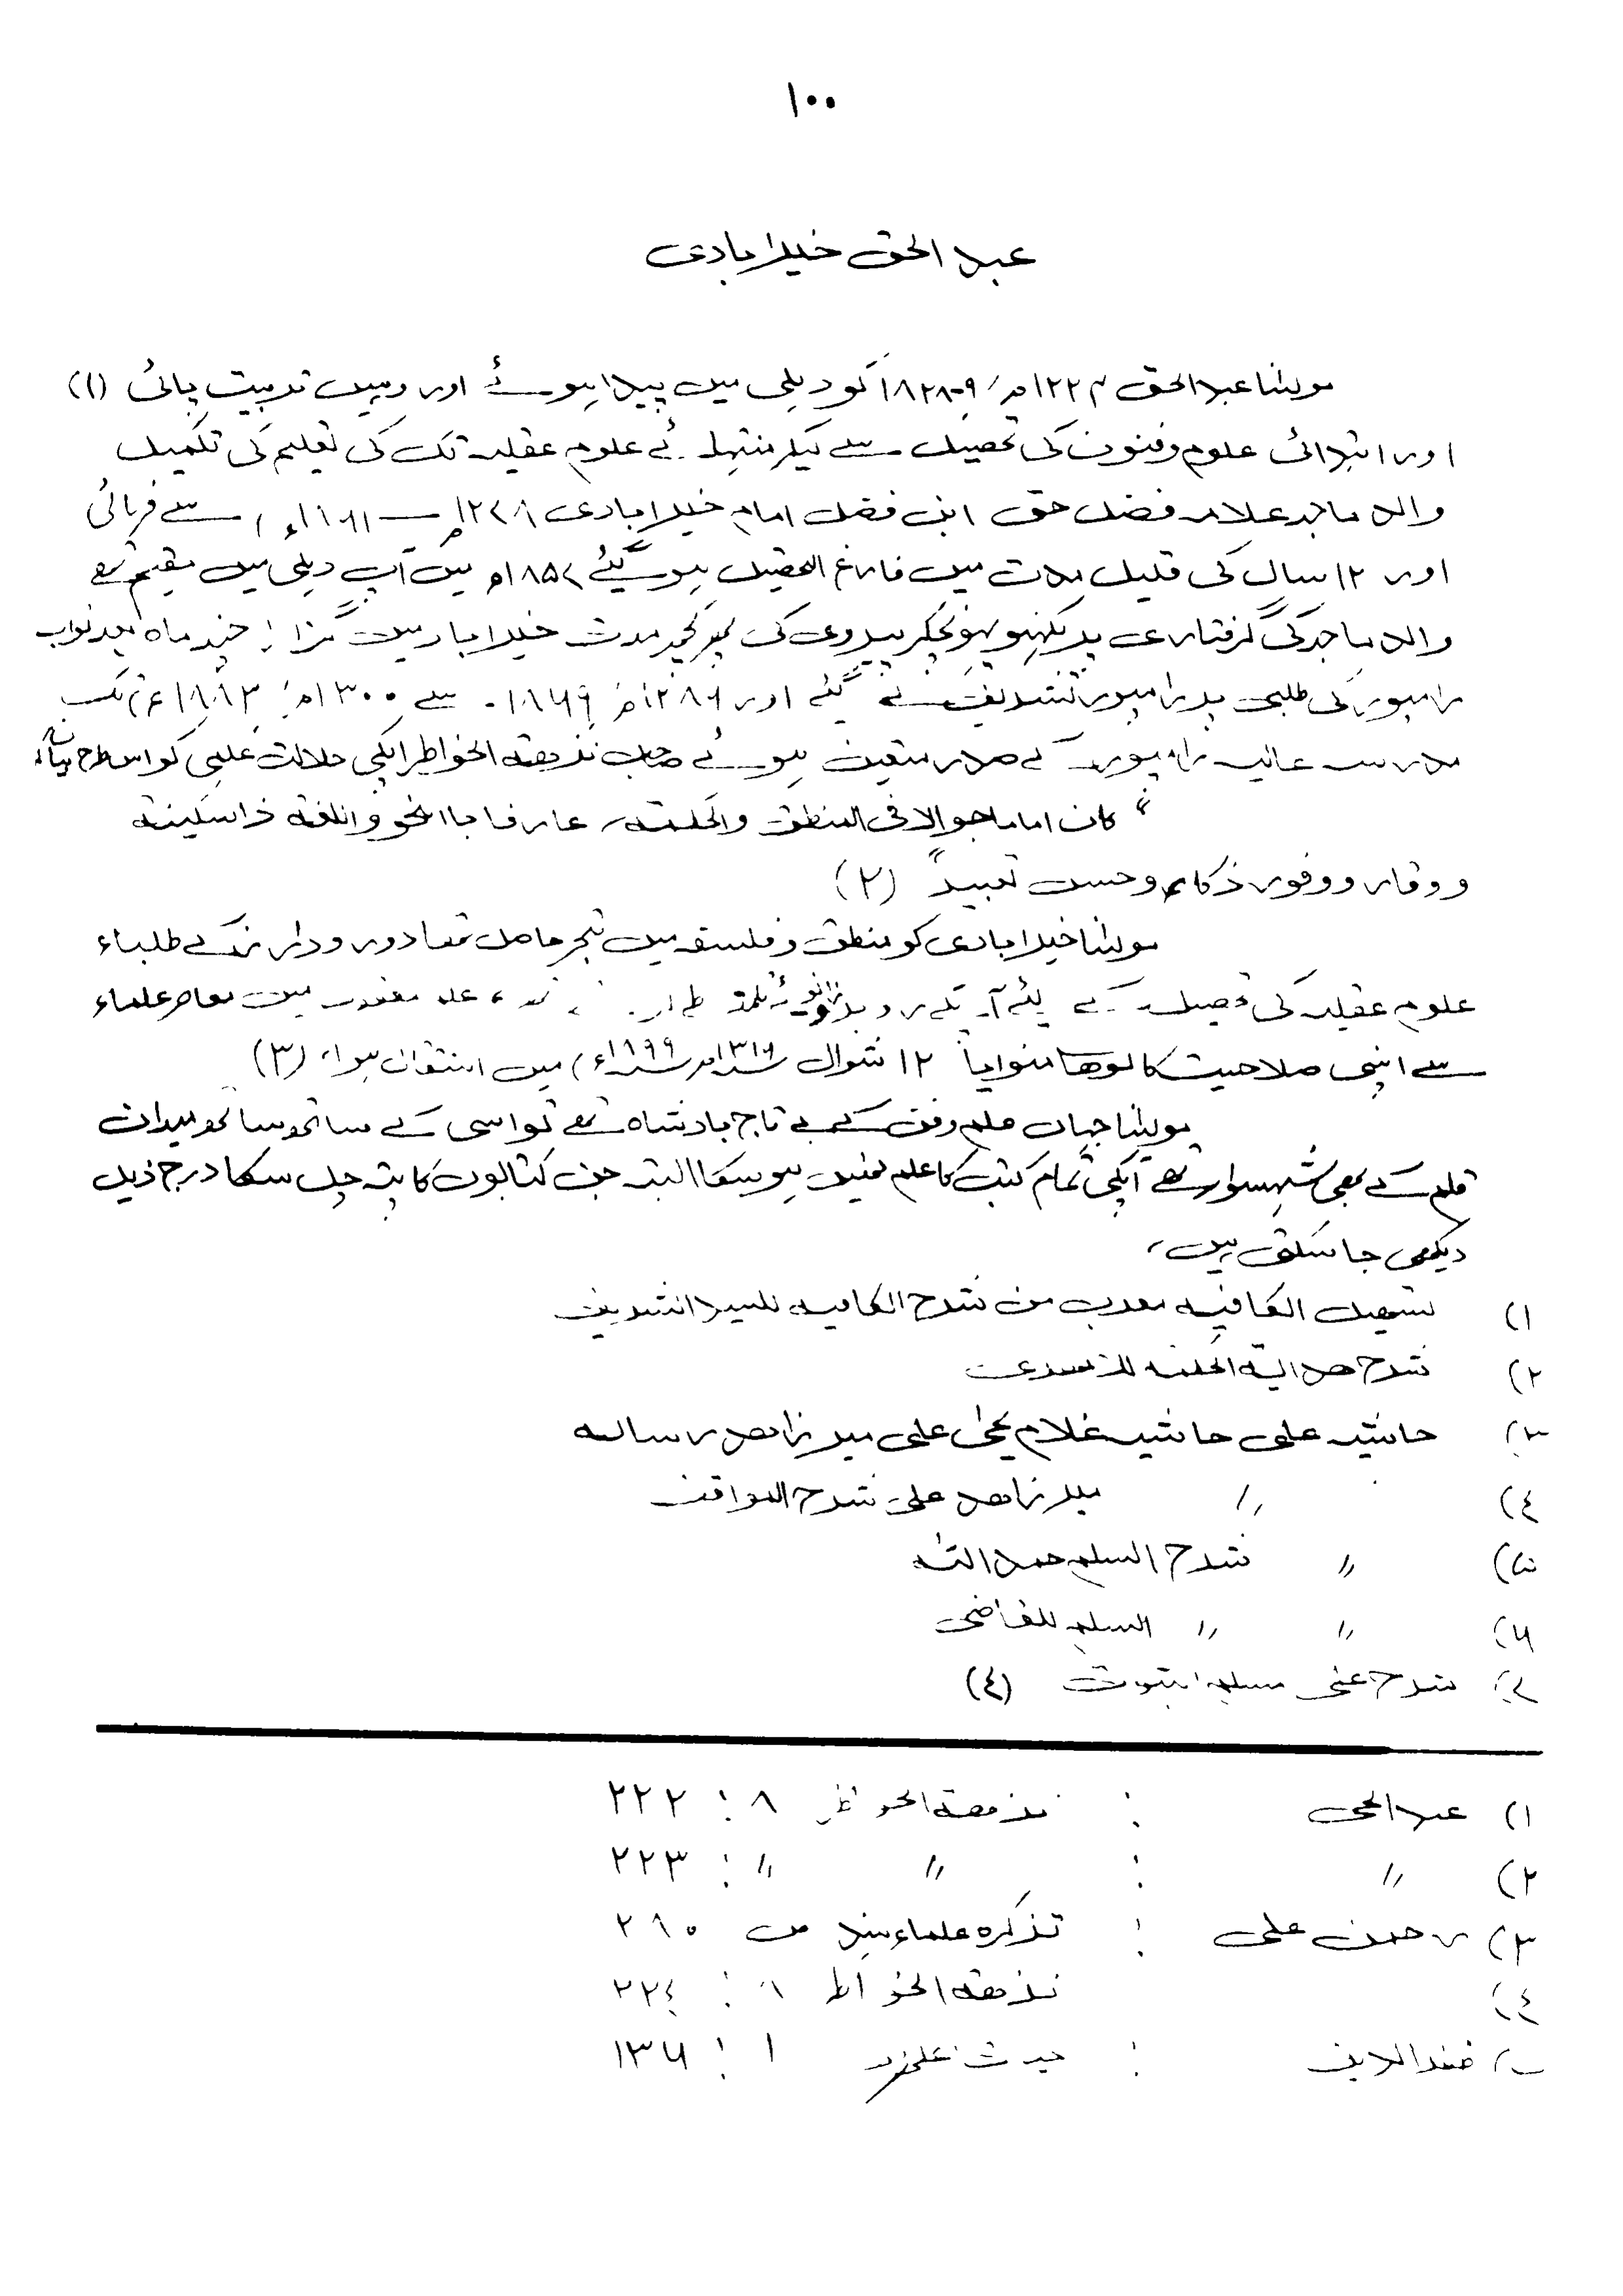 ١٠٠
عبدالحق خیرابادی
مولٰنا عبدالحق ١٨٢٨-٩ کو دہلی میں پیدا ہوئے اور وہیں تربیت پائی (١)
اور ابتدائی علوم و فنون کی تحصیل سے لیکر منتہا ئے علوم عقلیہ تک کی تعلیم کی تکمیل
والد ماجد علامہ فضل حق ابن فضل امام خیرابادی سے فرمائی
اور ١٢ سال کی قلیل مدت میں فارغ التحصیل ہوگئے ١٨٥٧ء میں آپ دہلی میں مقیم تھے
والد ماجد کی گرفتاری پر لکھنو پہونچکر پیروی کی پھر کچھ مدت خیراباد میں گزارا چند ماہ بعد نواب
رامپور کی طلبی پر رامپور تشریف لے گئے اور ١٢٨٦ھ ١٨٦٩ سے ١٣٠٠ھ تک
مدرسہ عالیہ رامپور کے صدر متعین ہوئے صاحب نزھتہ الخواطر انکی جلالت علمی کو اسطرح بیان
" کان اماما جوالا فی المنطق والحکمتہ، عارفا باالنحو واللغتہ ذاسکینتہ
ووقار ووفور ذکاء وحسن تعبیر" (٢)
مولٰنا خیرابادی کو منطق و فلسفہ میں تبحر حاصل تھا دور و دراز کے طلباء
علوم عقلیہ کی تحصیل کے لئے آپکے روبرو زانوئے تلمذ میں معاصر علماء
سے اپنی صلاحیت کا لوھا منوایا ١٢ شوال ١٣١٦ھ ١٨٩٩ء میں انتقال ہوا، (٣)
مولٰنا جہاں علم وفن کے بے تاج بادشاہ تھے تو اسی کے ساتھ ساتھ میدان
قلم کے بھی شہسوار تھے آپکی تمام کتب کا علم نہیں ہوسکا البتہ جن کتابوں کا پتہ چل سکا درج ذیل
دیکھی جاسکتی ہیں،
١) تسھیل الکافیہ معرب من شرح الکافیہ للسید الشریف
٢) شرح ھدایتہ الحکمتہ
٣) حاشیہ علی حاشیہ غلام یحیٰ علی میر زاھد رسالہ
٤) " میر زاھد علی شرح المواقف
٥) " شرح السلم حمد اللہ
٦) " " السلم للقاضی
٧) شرح علی مسلم الثبوت (٤)
١) عبدالحی : نزھتہ الخواطر ٨ : ٢٢٢
٢) " : " " : ٢٢٣
٣) رحمن علی : تذکرہ علماء ہند ص ٢٩٠
٤) نزھتہ الخواطر ٨ : ٢٢٤
قمرالدین : ١ : ١٣٦